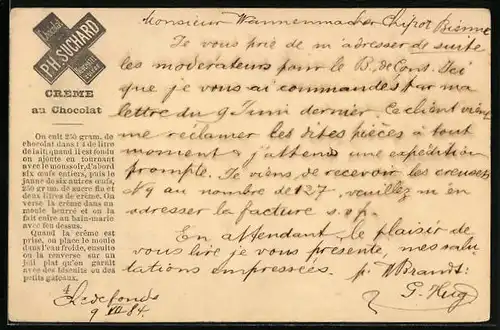 Chocolat
PH. SUCHARD
CREME
au Chocolat
On cuit 250 gram. de
chocolat dans 1 3/4 de litre
de lait, quand il est fondu
on ajoute en tournant
avec le moussoir, d'abord
six œufs entiers, puis le
jaune de six autres œufs,
250 gram. de sucre fin et
deux litres de crême. On
verse la crême dans un
moule beurré et on la
fait cuire au bain-marie
avec feu dessus.
Quand la crême est
prise, on place le moule
dans l'eau froide, ensuite
on la renverse sur un
joli plat qu'on garnit
avec des biscuits ou des
petits gâteaux.
Monsieur Wannenmacher Bienne
Je vous prie de m'adresser de suite
les moderateurs pour le B. de Cons.
que je vous ai commandés par ma
lettre du 9 Juin dernier. Ce client vient
me réclamer les dites pièces à tout
moment & j'attend une expédition
prompte. Je viens de recevoir les creusets
N 9 au nombre de 127, veuillez m'en
adresser la facture s.v.p.
En attendant le plaisir de
vous lire je vous présente, mes salu
tations empressées. p. W Brandt:
G. Hug
9 VII 84